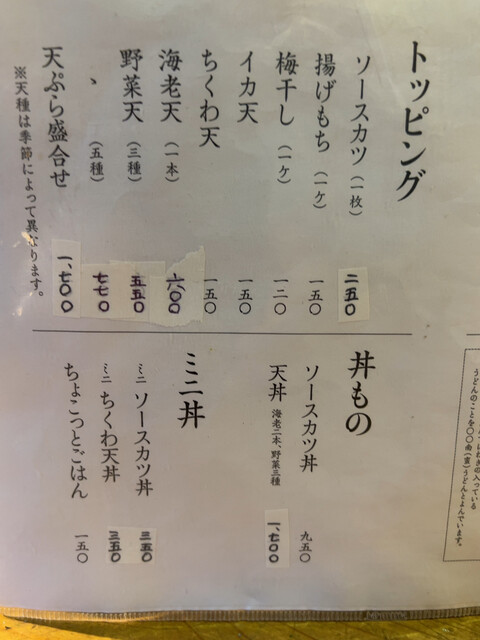 トッピング
ソースカツ（一枚） 二五〇
揚げもち（一ケ） 一五〇
梅干し（一ケ） 一二〇
イカ天 一五〇
ちくわ天 一五〇
海老天（一本） 六〇〇
野菜天（三種） 五五〇
、（五種） 七七〇
天ぷら盛合せ 一、七〇〇
※天種は季節によって異なります。
丼もの
ソースカツ丼 九五〇
天丼 海老二本、野菜三種 一、七〇〇
ミニ丼
ミニ ソースカツ丼 三五〇
ミニ ちくわ天丼 三五〇
ちょこっとごはん 一五〇
うどんのことを〇〇南(蛮)うどんとよんでいます。